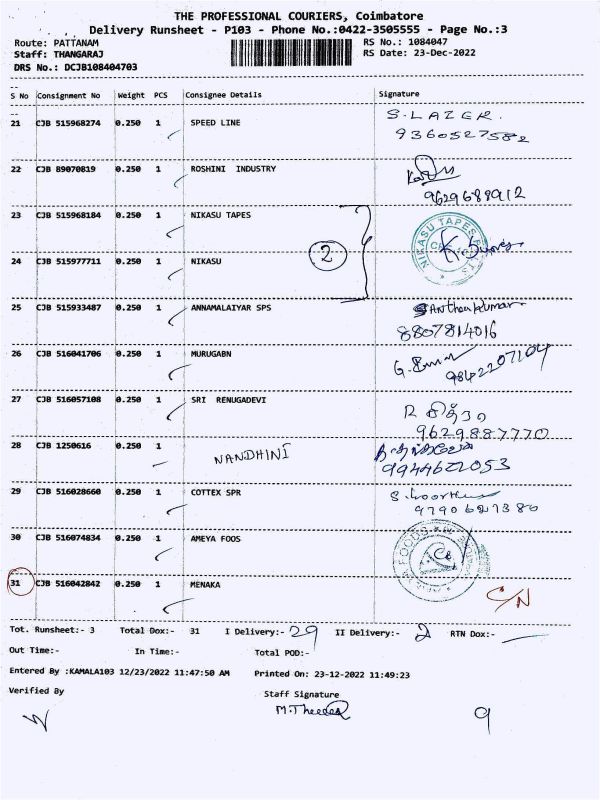 THE PROFESSIONAL COURIERS, Coimbatore
Delivery Runsheet - P103 - Phone No.:0422-3505555 - Page No.:3
Route: PATTANAM
RS No.: 1084047
Staff: THANGARAJ
RS Date: 23-Dec-2022
DRS No.: DCJB108404703
S No Consignment No Weight PCS Consignee Details Signature
21 CJB 515968274 0.250 1 SPEED LINE S. LAZER.
9360527582
22 CJB 89070819 0.250 1 ROSHINI INDUSTRY
9629689912
23 CJB 515968184 0.250 1 NIKASU TAPES
2
NIKASU TAPES
24 CJB 515977711 0.250 1 NIKASU
25 CJB 515933487 0.250 1 ANNAMALAIYAR SPS
8807814016
26 CJB 516041706 0.250 1 MURUGABN
9842207104
27 CJB 516057108 0.250 1 SRI RENUGADEVI
9629887770
28 CJB 1250616 0.250 1 NANDHINI
9944622053
29 CJB 516028660 0.250 1 COTTEX SPR
30 CJB 516074834 0.250 1 AMEYA FOOS
FOODS
31 CJB 516042842 0.250 1 MENAKA
C/N
Tot. Runsheet:- 3 Total Dox:- 31 I Delivery:- 29 II Delivery:- 2 RTN Dox:-
Out Time:- In Time:- Total POD:-
Entered By :KAMALA103 12/23/2022 11:47:50 AM Printed On: 23-12-2022 11:49:23
Verified By Staff Signature
9